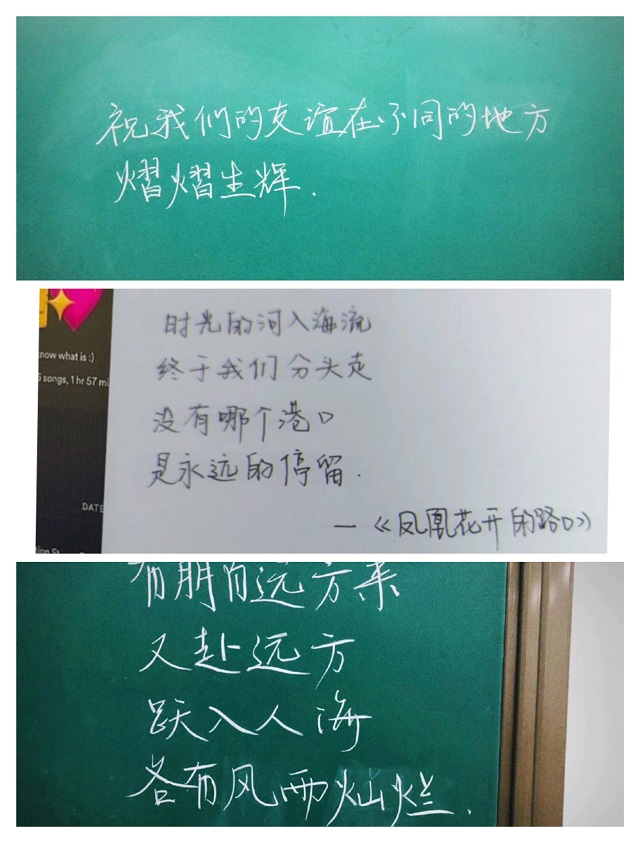 祝我们的友谊在不同的地方
熠熠生辉.
now what is :)
songs, 1 hr 57 mi
DATE
时光的河入海流
终于我们分头走
没有哪个港口
是永远的停留.
—《凤凰花开的路口》
有朋自远方来
又赴远方
跃入人海
各有风雨灿烂.